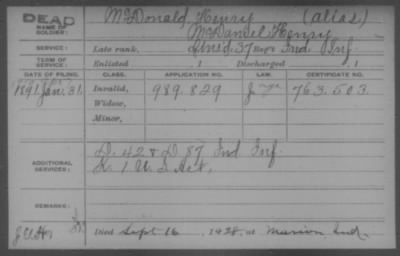 DEAD
NAME OF SOLDIER:
McDonald Henry (alias)
McDaniel Henry
SERVICE:
Late rank, 37 Reg't Ind. Inf
TERM OF SERVICE:
Enlisted , 1 Discharged , 1
DATE OF FILING. CLASS. APPLICATION NO. LAW. CERTIFICATE NO.
1891 Jan. 31. Invalid, 989.829 J 763.503.
Widow,
Minor,
ADDITIONAL SERVICES:
D. 42 & D 87 Ind Inf
K. 1 U.S.
Died Sept 16, 1928, at Marion Ind.